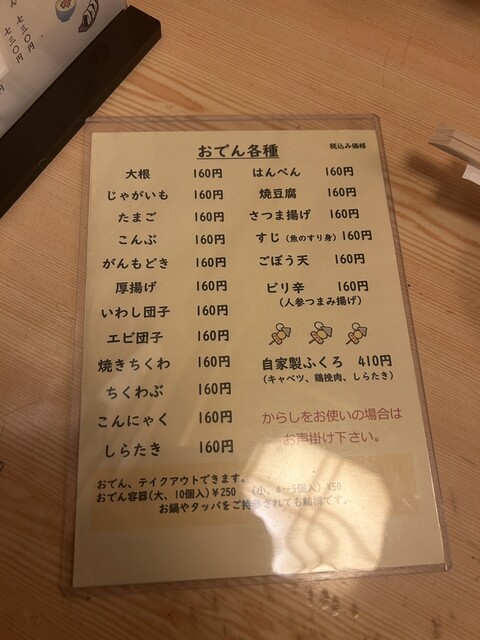 七三〇円
七三〇円
円
おでん各種
税込み価格
大根 160円
じゃがいも 160円
たまご 160円
こんぶ 160円
がんもどき 160円
厚揚げ 160円
いわし団子 160円
エビ団子 160円
焼きちくわ 160円
ちくわぶ 160円
こんにゃく 160円
しらたき 160円
はんぺん 160円
焼豆腐 160円
さつま揚げ 160円
すじ(魚のすり身)160円
ごぼう天 160円
ピリ辛 160円
(人参つまみ揚げ)
自家製ふくろ 410円
(キャベツ、鶏挽肉、しらたき)
からしをお使いの場合は
お声掛け下さい。
おでん、テイクアウトできます。
おでん容器(大、10個入)¥250 (小、4−5個入)¥50
お鍋やタッパをご持参されても結構です。